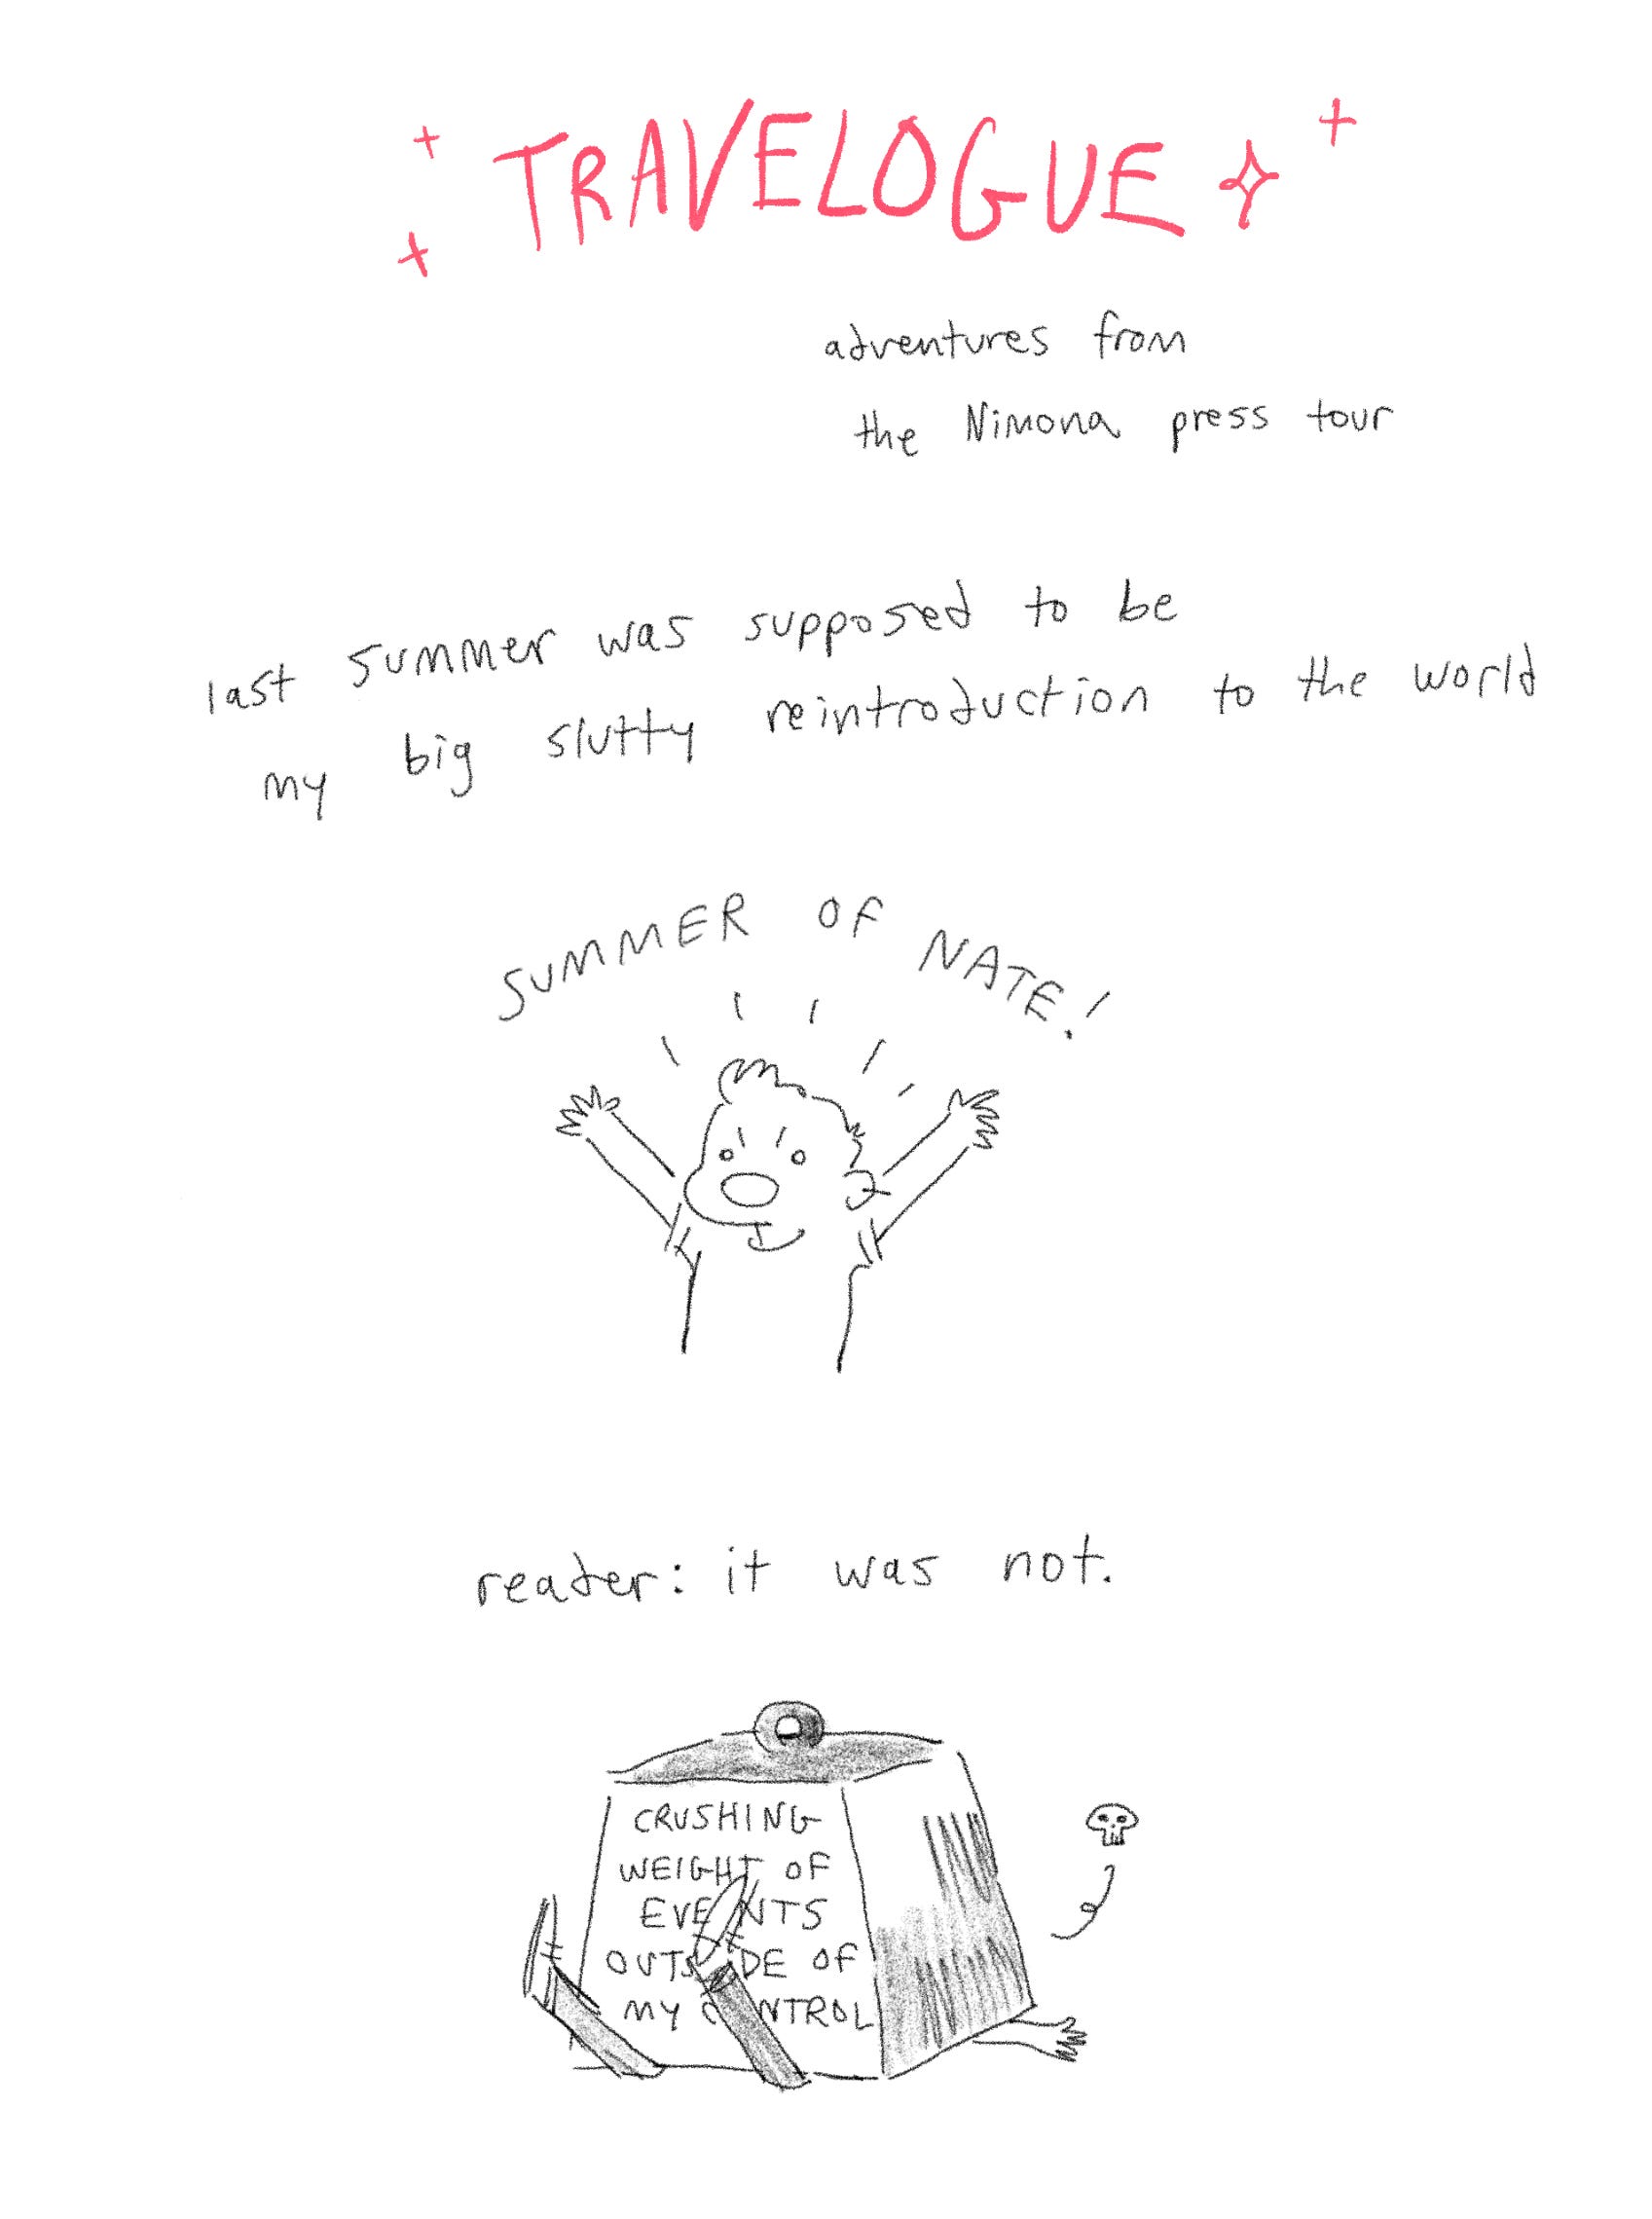 TRAVELOGUE
adventures from
the Nimona press tour
last summer was supposed to be
my big slutty reintroduction to the world
SUMMER OF NATE!
reader: it was not.
CRUSHING
WEIGHT OF
EVENTS
OUTSIDE OF
MY CONTROL